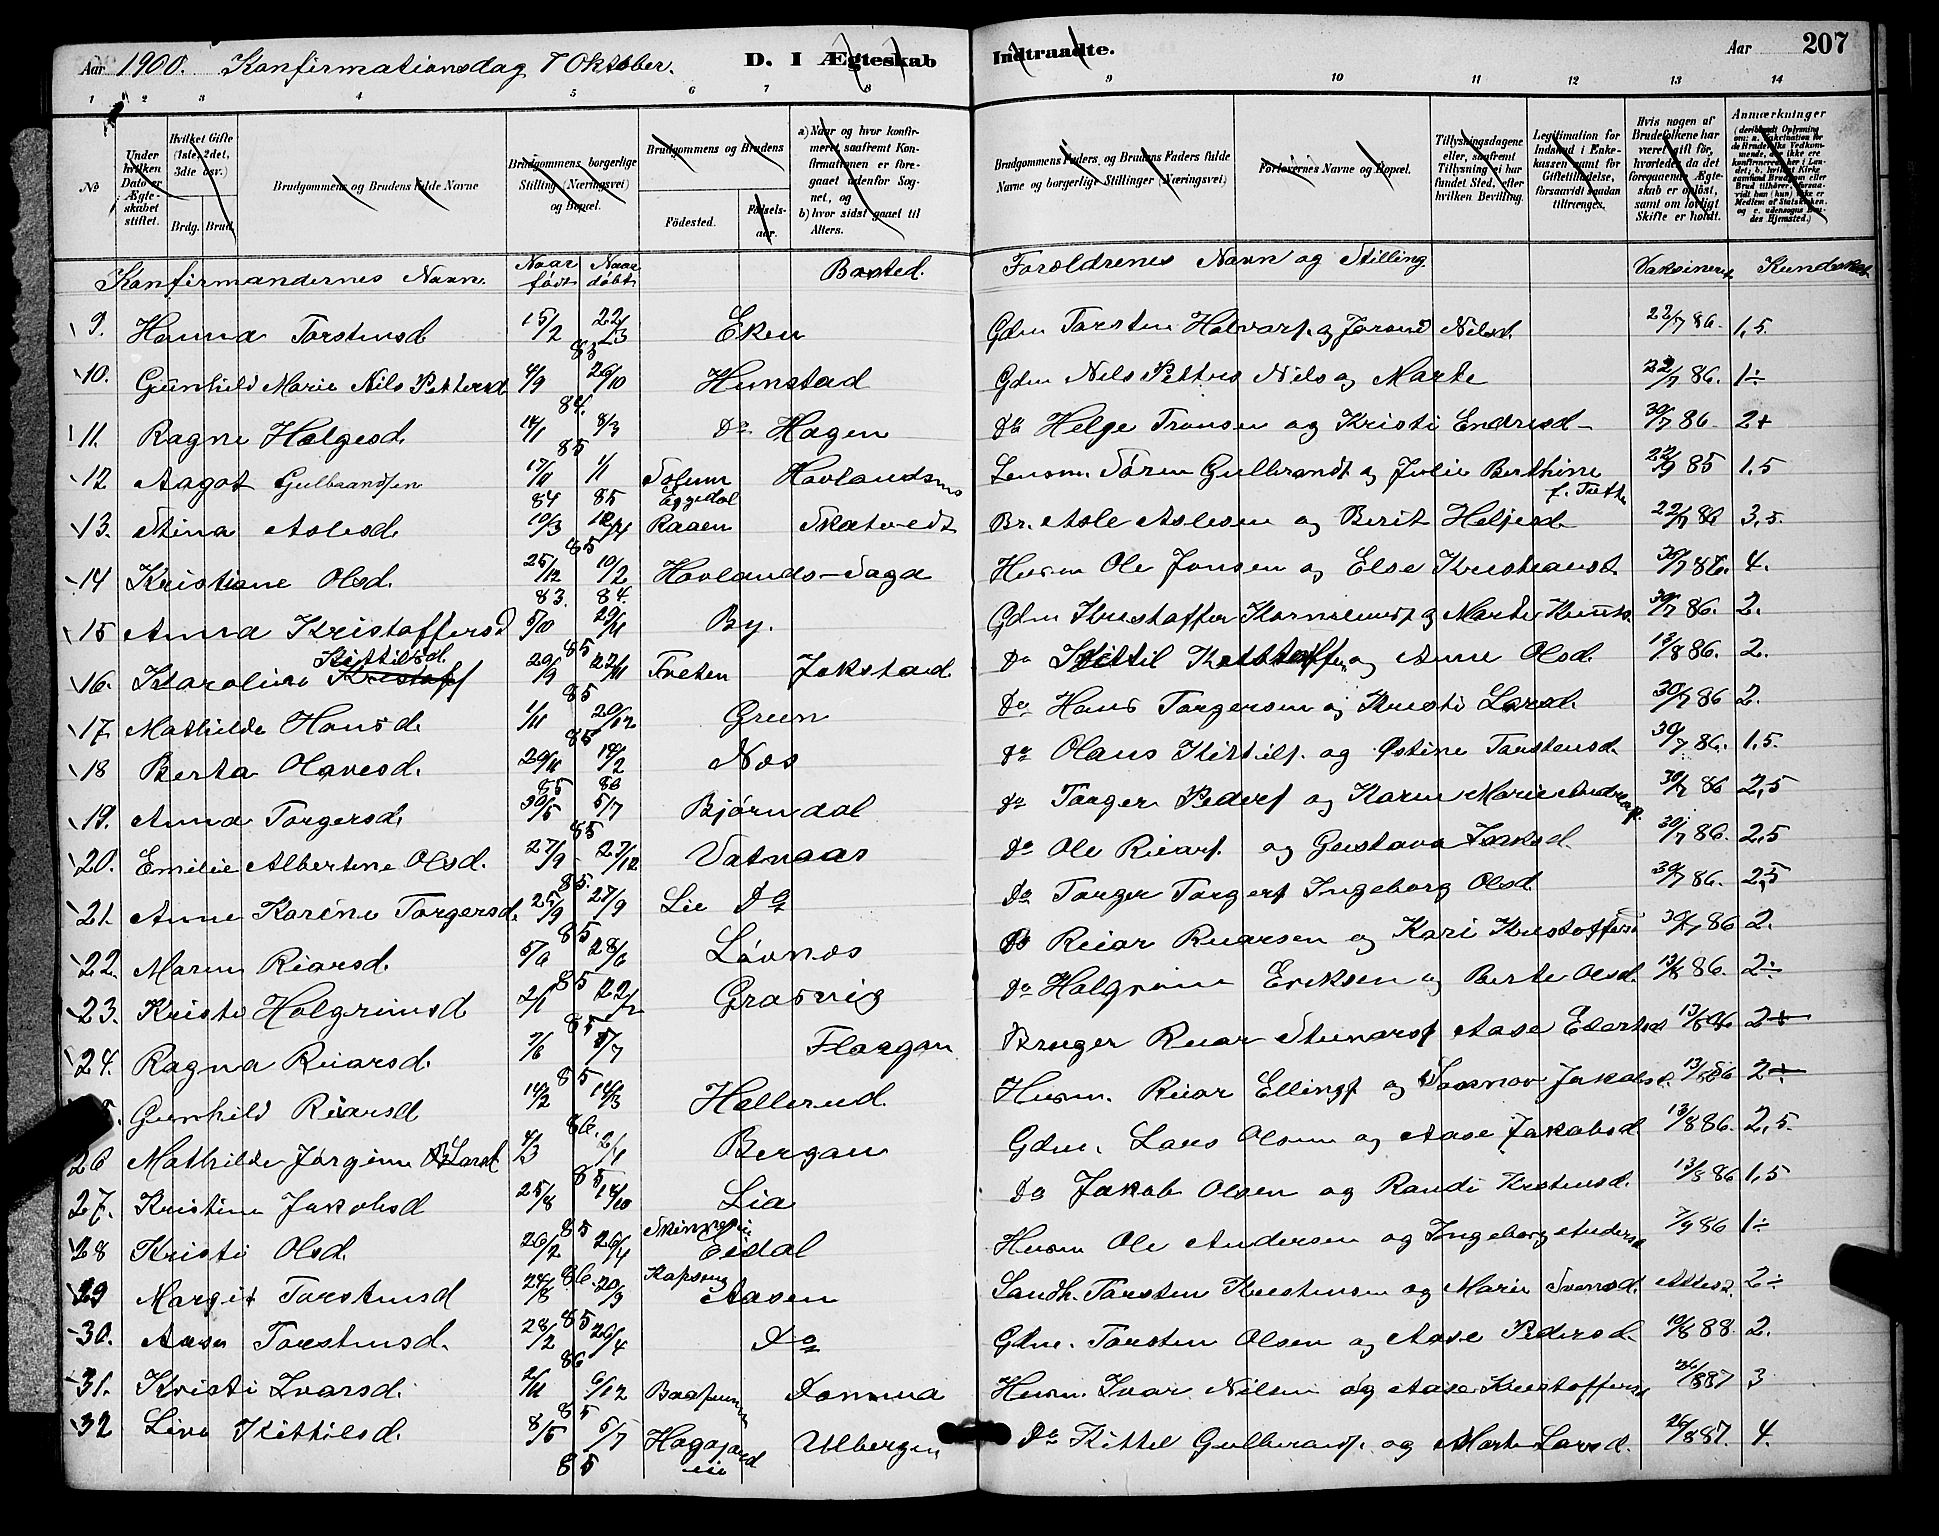 Aar 1900. Konfirmationsdag 7 Oktober. D. I Ægteskab Indtraadte. Aar 207
1 2 3 4 5 6 7 8 9 10 11 12 13 14
No
Under hvilken Dato er Ægteskabet stiftet.
Hvilket Gifte (1ste, 2det, 3die osv.)
Brdg. Brud.
Brudgommens og Brudens fulde Navne
Brudgommens borgerlige Stilling (Næringsvei) og Bopæl.
Brudgommens og Brudens
Födested.
Födselsaar.
a) Naar og hvor konfirmeret, saafremt Konfirmationen er foregaaet udenfor Sognet, og
b) hvor sidst gaaet til Alters.
Brudgommens Faders og Brudens Faders fulde Navne og borgerlige Stillinger (Næringsvei)
Forlovernes Navne og Bopæl.
Tillysningsdagene eller, saafremt Tillysning ei har fundet Sted, efter hvilken Bevilling.
Legitimation for Indskud i Enkekassen samt for Giftetilladelse, forsaavidt saadan tiltrænges.
Hvis nogen af Brudefolkene har været gift för, hvorledes da det foregaaende Ægteskab er oplöst, samt om lovligt Skifte er holdt.
Anmærkninger
Konfirmandernes Navn. Naar født Naar døbt Bosted. Forældrenes Navn og Stilling. Vaksineret Kundskab
9. Hanna Torstensd 15/2 22/3 85 Eken Gdm Torsten Halvorsf. og Jorand Nilsd. 22/7 86. 1,5.
10. Gunhild Marie Nils Pettersd 4/9 26/10 84. Hunstad Gdm Nils Petters Nils og Marte 22/7 86. 1÷
11. Ragne Helgesd. 14/1 8/3 85 Do Hagen Do Helge Tronsen og Kristi Endresd 30/7 86. 2+
12 Aagot Gulbrandsen 17/10 84 1/1 85 Solum Havlandsmo Lensm. Søren Gulbrandf. og Julie Berthine 22/9 85 1,5
13. Stina Aslesd. 10/3 12/4 85 Eggedal Raaen Skatvedt Br. Asle Aslesen og Berit Helgesd 22/7 86 3,5.
14 Kristiane Olsd. 25/12 83. 10/2 84. Hovlands-Saga Husm Ole Jonsen og Else Kristiansd. 30/7 86. 4.
15 Anna Kristoffersd 5/10 29/11 85 By. Gdm Kristoffer og Marte Knuts. 30/7 86. 2.
16. Karoline Kittilsd. 20/9 22/11 85 Tveten Jokstad Do Kittil og Anne Olsd. 13/8 86. 2.
17. Mathilde Hansd. 1/11 20/12 85 Green Do Hans Torgersen og Kristi Larsd. 30/7 86 2.
18 Berta Olavesd. 29/11 85 14/2 86 Næs Do Olaus Kittilsf. og Østine Torstensd. 30/7 86. 1,5.
19. Anna Torgersd. 30/5 5/7 85 Bjørndal Do Torger Pedersf og Karen Marie Andersf. 30/7 86 2,5
20. Emilie Albertine Olsd. 27/9 27/12 85. Vatnaas Do Ole Reiarsf. og Gustava Larsd. 30/7 86. 2,5
21. Anne Karine Torgersd. 25/9 27/9 85 Lie Do Do Torger Torgersf Ingeborg Olsd. 30/7 86. 2,5
22. Maren Reiarsd. 5/6 28/6 85 Løvnæs Do Reiar Reiarsen og Kari Kristoffersd 30/7 86 2.
23. Kristi Holgrimsd 2/1 22/2 85 Grasvig Do Holgrim Eriksen og Berte Olsd. 13/8 86. 2÷
24. Ragna Reiarsd. 7/6 5/7 85 Floagan Bruger Reiar Aase 13/8 86 2÷
Gunhild Reiarsd 14/2 14/3 86. Hallerud Husm. Reiar Ellingsf og Jakobsd. 13/8 86 2÷
26 Mathilde Jørgine Larsd 4/3 2/4 85 Bergan Gdm. Lars Olsen og Aase Jakobsd 13/8 86. 2,5.
27. Kristine Jakobsd 25/8 14/10 85 Lia Do Jakob Olsen og Randi Kristensd. 13/8 86 1,5
28 Kristi Olsd. 26/2 26/4 86. Eidal Husm Ole Andersen og Ingeborg Andersd 7/9 86 1÷
29 Margit Torstensd 24/8 20/9 85 Aasen Landh. Torsten Kristensen og Marie Svensd. Attest. 2÷
30. Aase Torstensd. 28/2 26/4 86 Do Gdm. Torsten Olsen og Aase Pedersd. 10/8 88. 2.
31. Kristi Ivarsd. 2/11 6/12 85 Husm. Ivar Nilsen og Aase Kristoffersd 26/8 87 3
32 Live Kittilsd. 8/5 5/7 85 Ulbergen Do Kittel Gulbrandsf. og Marte Larsd. 26/8 87. 4.